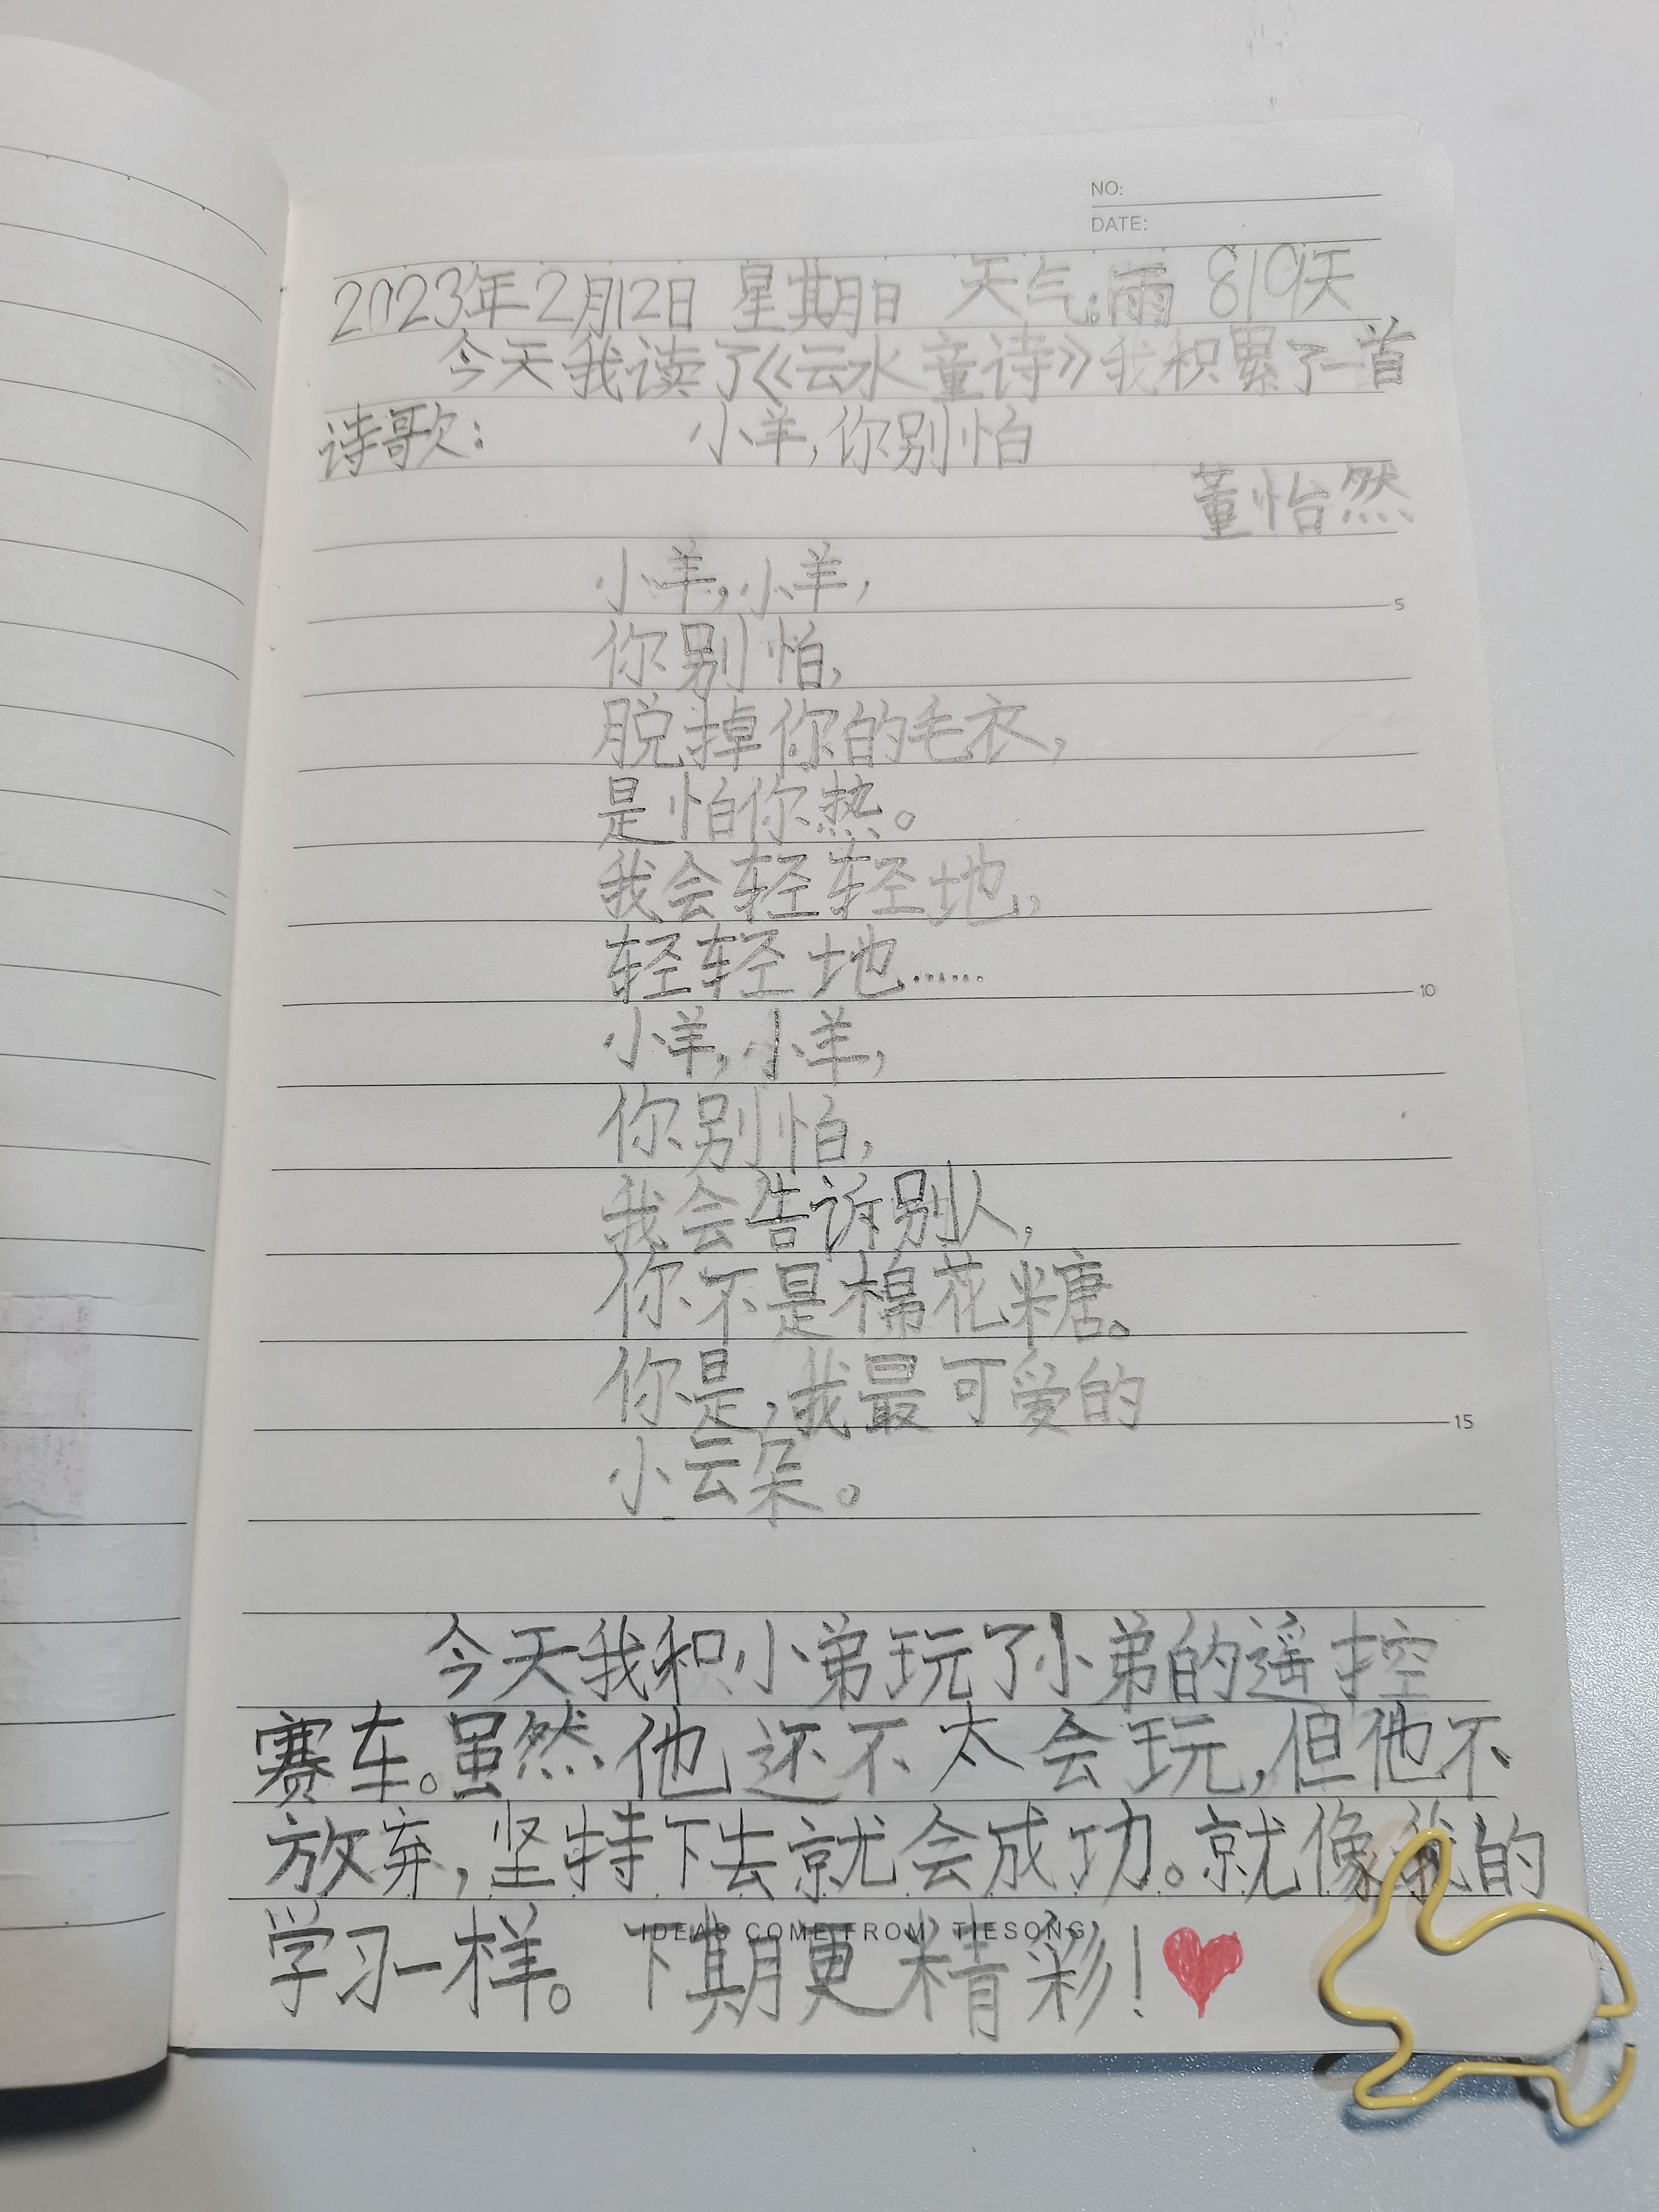 NO:
DATE:
2023年2月12日 星期日 天气:雨 819天
今天我读了《云水童诗》我积累了一首
诗歌: 小羊,你别怕
董怡然
小羊,小羊,
5
你别怕,
脱掉你的毛衣,
是怕你热。
我会轻轻地,
轻轻地……
10
小羊,小羊,
你别怕,
我会告诉别人,
你不是棉花糖。
你是,我最可爱的
15
小云朵。
今天我和小弟玩了小弟的遥控
赛车。虽然他还不太会玩,但他不
放弃,坚持下去就会成功。就像我的
学习一样。下期更精彩!
IDEAS COME FROM TIESONG